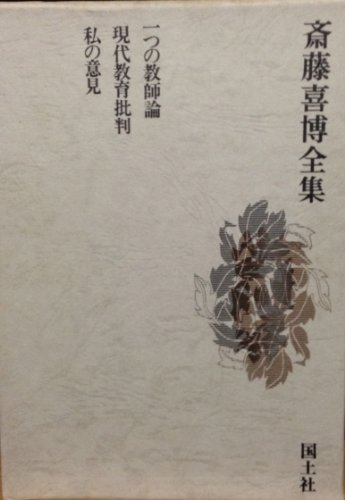 斎藤喜博全集
一つの教師論
現代教育批判
私の意見
国土社